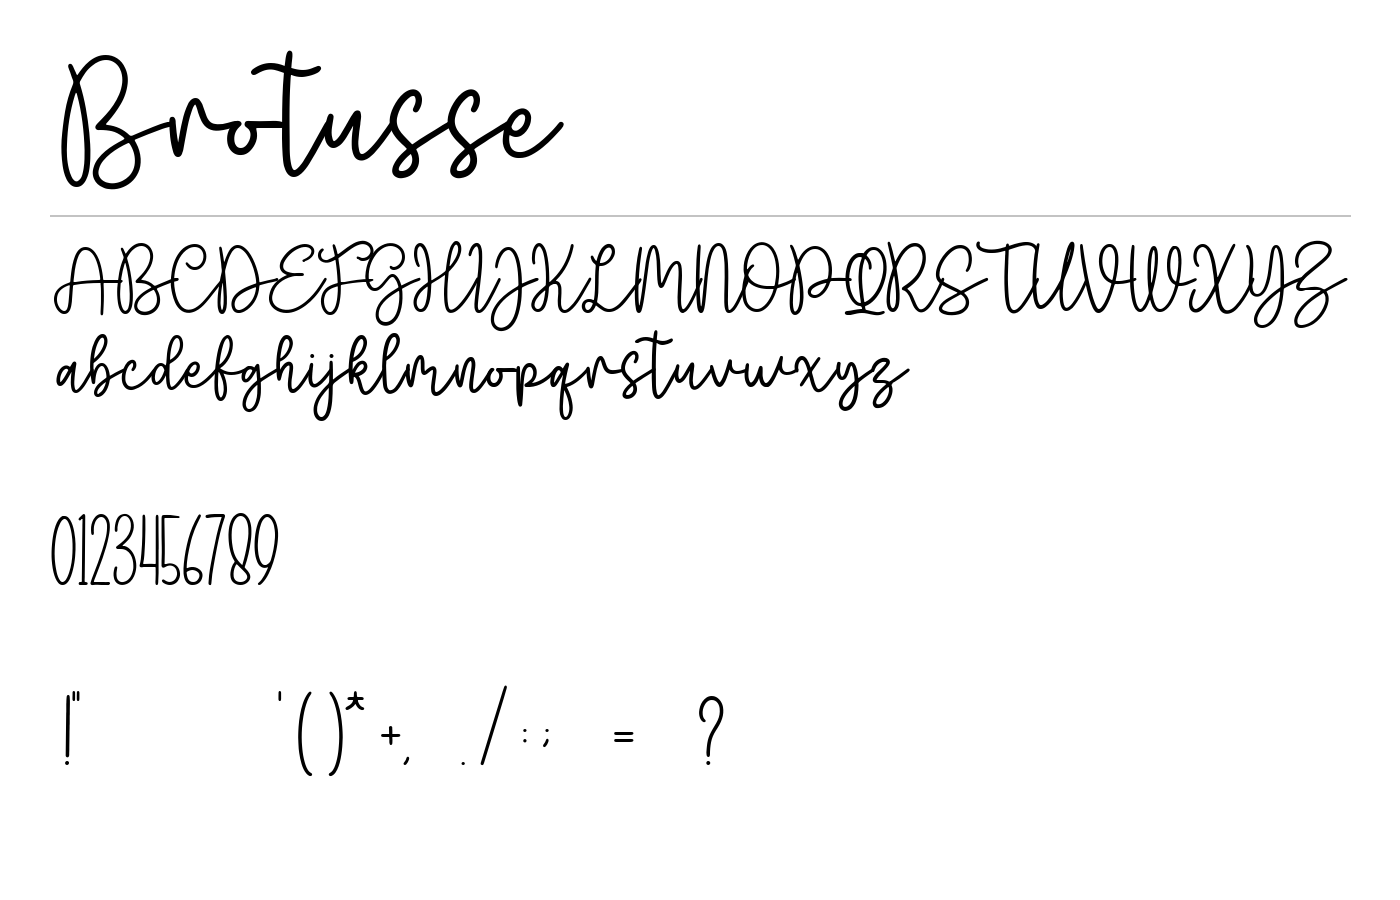 Brotusse
ABCDEFGHIJKLMNOPQRSTUVWXYZ
abcdefghijklmnopqrstuvwxyz
0123456789
!" '()*+, ./:; = ?